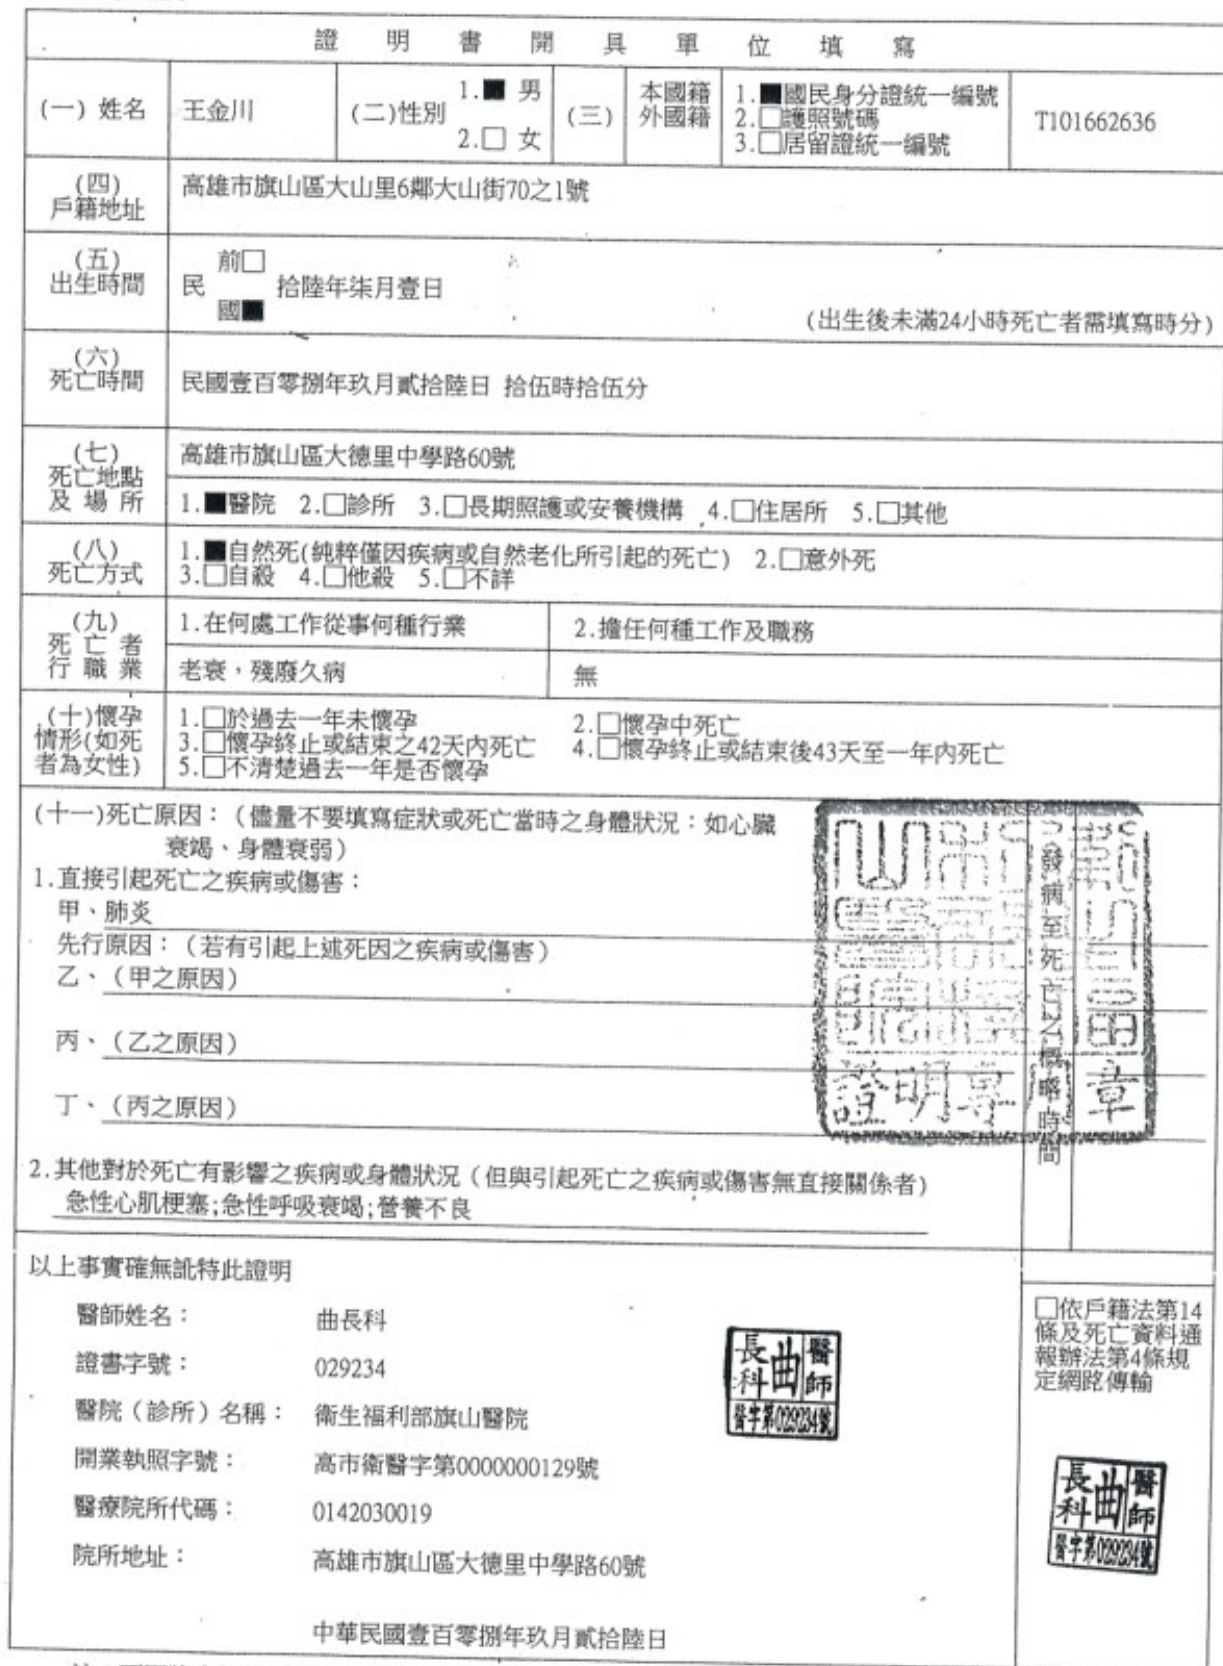 證明書開具單位填寫
(一) 姓名 王金川 (二)性別 1.■ 男 2.□ 女 (三) 本國籍 外國籍 1.■國民身分證統一編號 2.□護照號碼 3.□居留證統一編號 T101662636
(四) 戶籍地址 高雄市旗山區大山里6鄰大山街70之1號
(五) 出生時間 民 前□ 國■ 拾陸年柒月壹日
(出生後未滿24小時死亡者需填寫時分)
(六) 死亡時間 民國壹百零捌年玖月貳拾陸日 拾伍時拾伍分
(七) 死亡地點及場所 高雄市旗山區大德里中學路60號
1.■醫院 2.□診所 3.□長期照護或安養機構 4.□住居所 5.□其他
(八) 死亡方式 1.■自然死(純粹僅因疾病或自然老化所引起的死亡) 2.□意外死
3.□自殺 4.□他殺 5.□不詳
(九) 死亡者行職業 1.在何處工作從事何種行業 2.擔任何種工作及職務
老衰，殘廢久病 無
(十)懷孕情形(如死者為女性) 1.□於過去一年未懷孕 2.□懷孕中死亡
3.□懷孕終止或結束之42天內死亡 4.□懷孕終止或結束後43天至一年內死亡
5.□不清楚過去一年是否懷孕
(十一)死亡原因：（儘量不要填寫症狀或死亡當時之身體狀況：如心臟
衰竭、身體衰弱）
1.直接引起死亡之疾病或傷害：
甲、肺炎
先行原因：（若有引起上述死因之疾病或傷害）
乙、（甲之原因）
丙、（乙之原因）
丁、（丙之原因）
發病至死亡之概略時間
證明專章
2.其他對於死亡有影響之疾病或身體狀況（但與引起死亡之疾病或傷害無直接關係者）
急性心肌梗塞;急性呼吸衰竭;營養不良
以上事實確無訛特此證明
醫師姓名： 曲長科
證書字號： 029234
醫院（診所）名稱： 衛生福利部旗山醫院
開業執照字號： 高市衛醫字第0000000129號
醫療院所代碼： 0142030019
院所地址： 高雄市旗山區大德里中學路60號
中華民國壹百零捌年玖月貳拾陸日
醫師曲長科
醫字第029234號
□依戶籍法第14
條及死亡資料通
報辦法第4條規
定網路傳輸
醫師曲長科
醫字第029234號